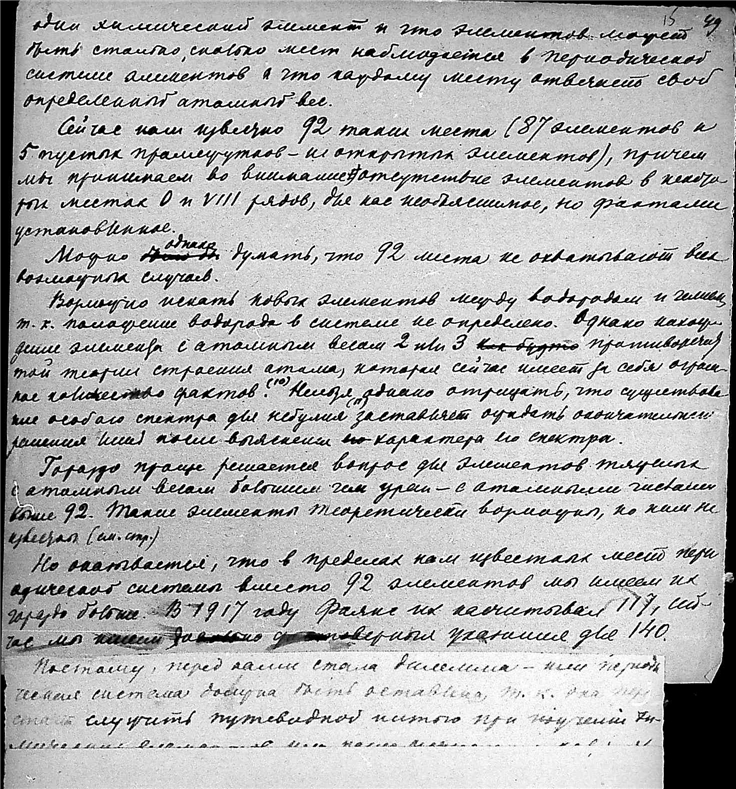 15 49
один химический элемент и что элементов может
быть столько, сколько мест наблюдается в периодической
системе элементов и что каждому месту отвечает свой
определенный атомный вес.
Сейчас нам известно 92 таких места (87 элементов и
5 пустых промежутков – не открытых элементов), причем
мы принимаем во внимание отсутствие элементов в некото-
рых местах 0 и VIII рядов, для нас необъяснимое, но фактами
установленное.
Можно однако думать, что 92 места не охватывают всех
возможных случаев.
Возможно искать новых элементов между водородом и гелием,
т. к. положение водорода в системе не определено. Однако нахож-
дение элемента с атомным весом 2 или 3 как будто противоречит
той теории строения атома, которая сейчас имеет за себя огром-
ное количество фактов.(10) Нельзя однако отрицать, что существова-
ние особого спектра для небулия (11) заставляет ожидать окончательного
решения лишь после выяснения характера его спектра.
Гораздо проще решается вопрос для элементов тяжелых
с атомным весом большим чем уран – с атомными числами
выше 92. Такие элементы теоретически возможны, но нам не
известны (см. стр.)
Но оказывается, что в пределах нам известных мест пери-
одической системы вместо 92 элементов мы имеем их
гораздо больше. В 1917 году Фаянс их насчитывал 117, сей-
час мы имеем достоверных указания для 140.
Поэтому, перед нами стала дилемма – или периоди-
ческая система должна быть оставлена, т. к. она пере-
стает служить путеводной нитью при изучении хи-